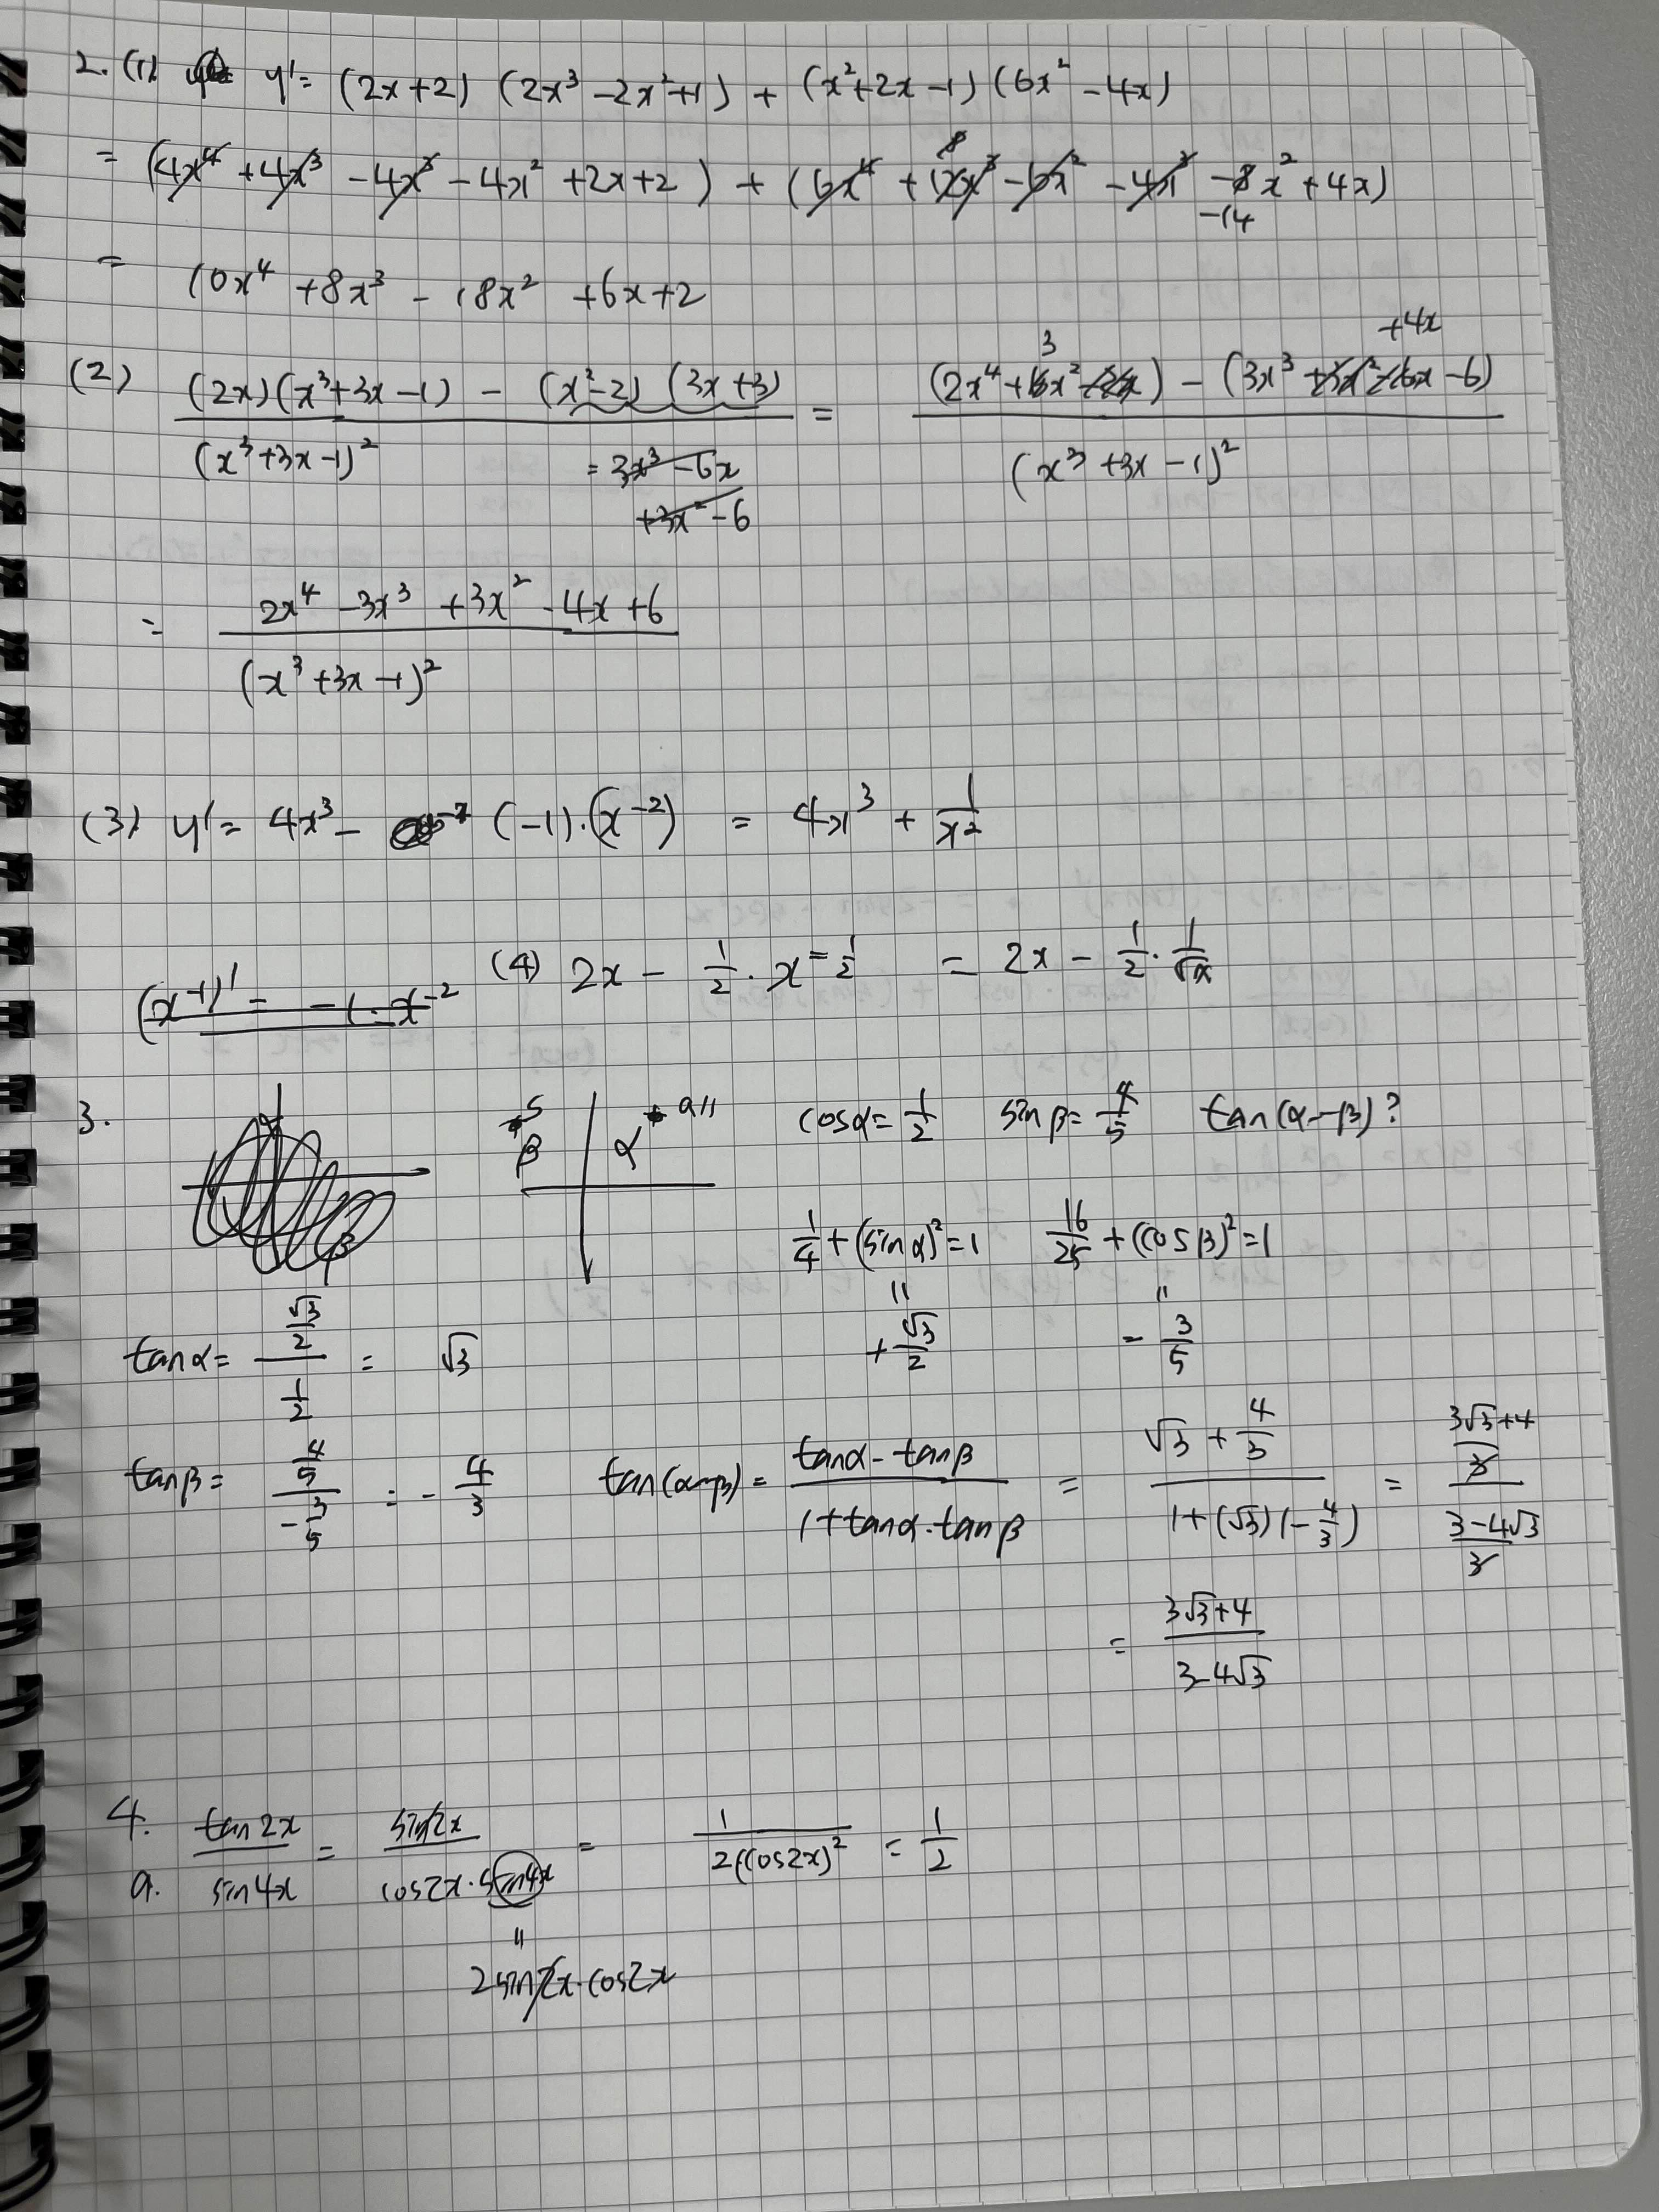 2. (1) y' = (2x+2) (2x³ -2x²+1) + (x²+2x-1) (6x² -4x)
= (4x⁴ +4x³ -4x³ -4x² +2x+2) + (6x⁴ +12x³ -6x² -4x³ -8x² +4x)
8
-14
= 10x⁴ +8x³ -18x² +6x+2
(2) ((2x)(x³+3x-1) - (x²-2)(3x+3))/(x³+3x-1)² = ((2x⁴ + x² -2x) - (3x³ +3x² -6x -6))/(x³+3x-1)²
3
+4x
= 3x³ -6x
+3x² -6
= (2x⁴ -3x³ +3x² -4x +6)/(x³+3x-1)²
(3) y' = 4x³ - (-1)·(x⁻²) = 4x³ + 1/x²
(4) 2x - 1/2 · x^-1/2 = 2x - 1/2 · 1/√x
(x⁻¹)' = -1·x⁻²
3. S all cosα = 1/2 sinβ = 4/5 tan(α-β)?
β α
β
1/4 + (sinα)² = 1 16/25 + (cosβ)² = 1
" "
+ √3/2 - 3/5
tanα = (√3/2)/(1/2) = √3
tanβ = (4/5)/(-3/5) = -4/3 tan(α-β) = (tanα - tanβ)/(1+tanα·tanβ) = (√3 + 4/3)/(1+(√3)(-4/3)) = ((3√3+4)/3)/((3-4√3)/3)
= (3√3+4)/(3-4√3)
4.
a. tan2x/sin4x = sin2x/(cos2x·sin4x) = 1/(2(cos2x)²) = 1/2
"
2sin2x·cos2x